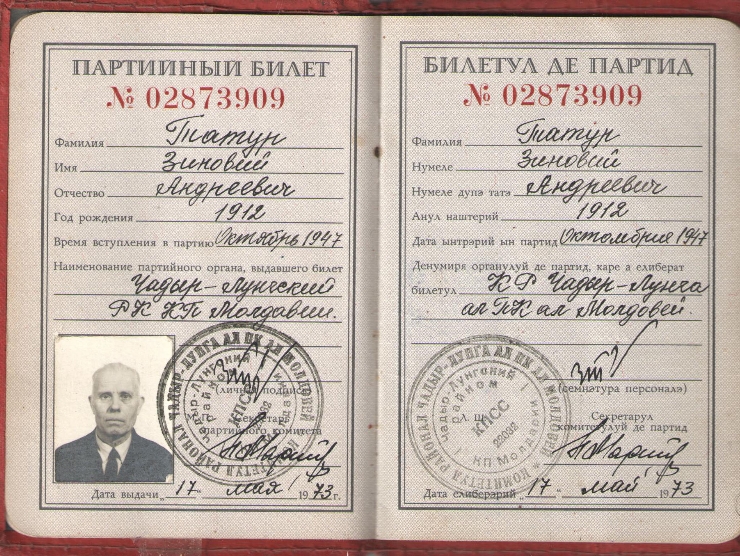 ПАРТИЙНЫЙ БИЛЕТ
№ 02873909
Фамилия Татур
Имя Зиновий
Отчество Андреевич
Год рождения 1912
Время вступления в партию Октябрь 1947
Наименование партийного органа, выдавшего билет
Чадыр-Лунгский
РК КП Молдавии.
(личная подпись)
Секретарь
партийного комитета
Дата выдачи „17” мая 1973 г.
КПСС
22032
БИЛЕТУЛ ДЕ ПАРТИД
№ 02873909
Фамилия Татур
Нумеле Зиновий
Нумеле дупэ татэ Андреевич
Анул наштерий 1912
Дата ынтрэрий ын партид Октомбрие 1947
Денумиря органулуй де партид, каре а елиберат
билетул КР Чадыр-Лунга
ал ПК ал Молдовей.
(семнэтура персоналэ)
Л. Ш.
Секретарул
комитетулуй де партид
Дата елиберэрий „17” май 1973
КОМИТЕТУЛ РАЙОНАЛ ЧАДЫР-ЛУНГА АЛ ПК АЛ МОЛДОВЕЙ
Чадыр-Лунгский райком
КП Молдавии
КПСС
22032